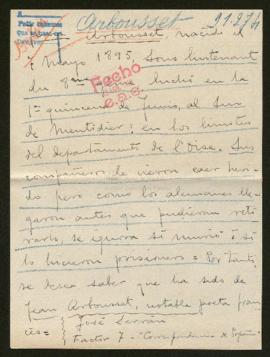 Arbousset 91.274
Arbousset nacido el
7 Mayo 1895, Sous lieutenant
du 8me luchó en la
1ª quincena de Junio, al Sur
de Montdidier; en los límites
del departamento de l'Oise. Sus
compañeros le vieron caer heri-
do pero como los alemanes lle-
garon antes que pudieran reti-
rarlo, se ignora si murió ó si
lo hicieron prisionero = Por tanto,
se desea saber que ha sido de
Jean Arbousset, notable poeta fran
cés =
José
Factor 7 - "Correspondencia de España"
Fecho